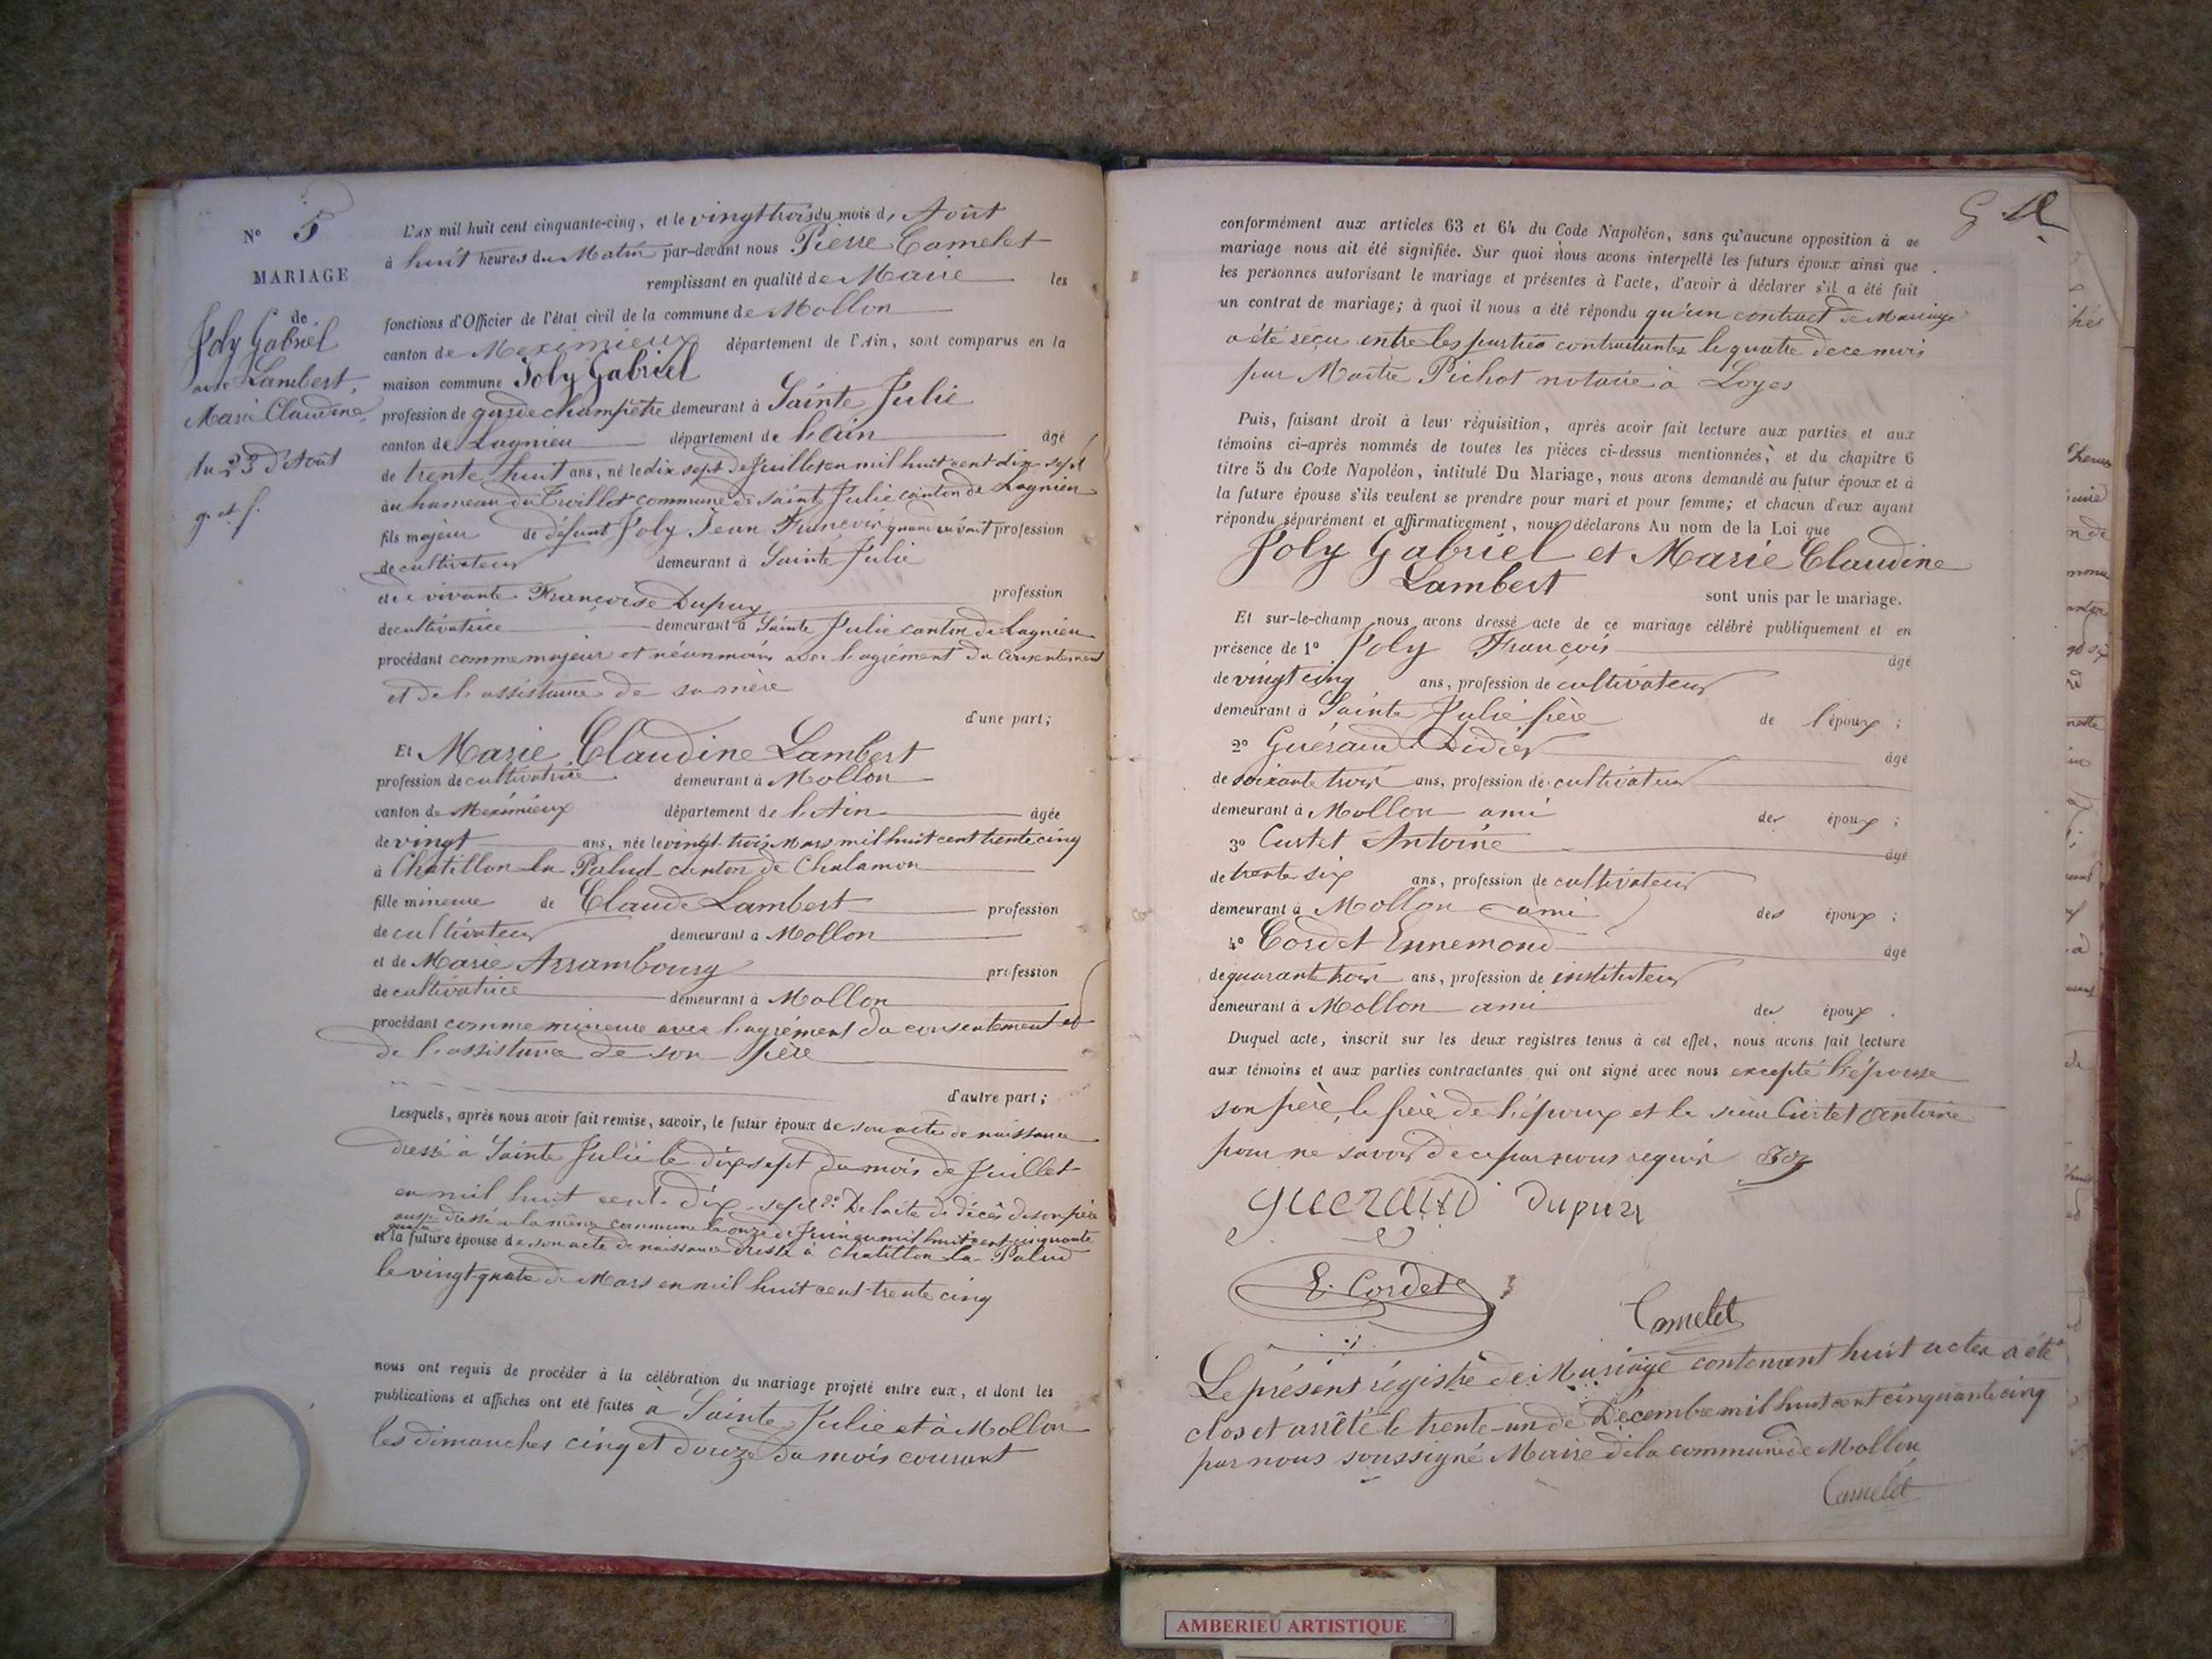 N° 5
MARIAGE
de
Joly Gabriel
avec Lambert
Marie Claudine
Du 23 d'Août
g. et f.
L'AN mil huit cent cinquante-cinq, et le vingt trois du mois d' Août
à huit heures du Matin par-devant nous Pierre Camelet
remplissant en qualité de Maire les
fonctions d'Officier de l'état civil de la commune de Mollon
canton de Meximieux département de l'Ain, sont comparus en la
maison commune Joly Gabriel
profession de garde champêtre demeurant à Sainte Julie
canton de Lagnieu département de l'Ain âgé
de trente huit ans, né le dix sept de Juillet en mil huit cent dix sept
au hameau du Trvillet commune de Sainte Julie canton de Lagnieu
fils majeur de défunt Joly Jean François quand vivait profession
de cultivateur demeurant à Sainte Julie
et de vivante Françoise Dupuy profession
de cultivatrice demeurant à Sainte Julie canton de Lagnieu
procédant comme majeur et néanmoins avec l'agrément du consentement
et de l'assistance de sa mère
d'une part;
Et Marie Claudine Lambert
profession de cultivatrice demeurant à Mollon
canton de Meximieux département de l'Ain âgée
de vingt ans, née le vingt trois Mars mil huit cent trente cinq
à Chatillon la Palud canton de Chalamon
fille mineure de Claude Lambert profession
de cultivateur demeurant à Mollon
et de Marie Arrambourg profession
de cultivatrice demeurant à Mollon
procédant comme mineure avec l'agrément du consentement et
de l'assistance de son père
d'autre part;
Lesquels, après nous avoir fait remise, savoir, le futur époux de son acte de naissance
dressé à Sainte Julie le dix sept du mois de Juillet
en mil huit cent dix-sept 2° De l'acte de décès de son père
aussi dressé à la même commune le onze de Juin en mil huit cent cinquante
quatre
et la future épouse de son acte de naissance dressé à Chatillon la Palud
le vingt quatre de Mars en mil huit cent trente cinq
nous ont requis de procéder à la célébration du mariage projeté entre eux, et dont les
publications et affiches ont été faites à Sainte Julie et à Mollon
les dimanches cinq et douze du mois courant
conformément aux articles 63 et 64 du Code Napoléon, sans qu'aucune opposition à ce
mariage nous ait été signifiée. Sur quoi nous avons interpellé les futurs époux ainsi que
les personnes autorisant le mariage et présentes à l'acte, d'avoir à déclarer s'il a été fait
un contrat de mariage; à quoi il nous a été répondu qu'un contract de Mariage
a été reçu entre les parties contractantes le quatre de ce mois
par Maître Pichot notaire à Loyes
Puis, faisant droit à leur réquisition, après avoir fait lecture aux parties et aux
témoins ci-après nommés de toutes les pièces ci-dessus mentionnées, et du chapitre 6
titre 5 du Code Napoléon, intitulé Du Mariage, nous avons demandé au futur époux et à
la future épouse s'ils veulent se prendre pour mari et pour femme; et chacun d'eux ayant
répondu séparément et affirmativement, nous déclarons Au nom de la Loi que
Joly Gabriel et Marie Claudine
Lambert
sont unis par le mariage.
Et sur-le-champ nous avons dressé acte de ce mariage célébré publiquement et en
présence de 1° Joly François âgé
de vingt cinq ans, profession de cultivateur
demeurant à Sainte Julie frère de l'époux;
2° Guéraud Didier âgé
de soixante trois ans, profession de cultivateur
demeurant à Mollon ami des époux;
3° Curtet Antoine âgé
de trente six ans, profession de cultivateur
demeurant à Mollon ami des époux;
4° Cordet Ennemond âgé
de quarante trois ans, profession de instituteur
demeurant à Mollon ami des époux.
Duquel acte, inscrit sur les deux registres tenus à cet effet, nous avons fait lecture
aux témoins et aux parties contractantes qui ont signé avec nous excepté l'épouse
son père, le frère de l'époux et le sieur Curtet Antoine
pour ne savoir de ce par nous requis
Gueraud Dupuy
E. Cordet
Camelet
Le présent régistre de Mariage contenant huit actes a été
clos et arrêté le trente-un de Décembre mil huit cent cinquante cinq
par nous soussigné Maire de la commune de Mollon
Camelet
AMBERIEU ARTISTIQUE